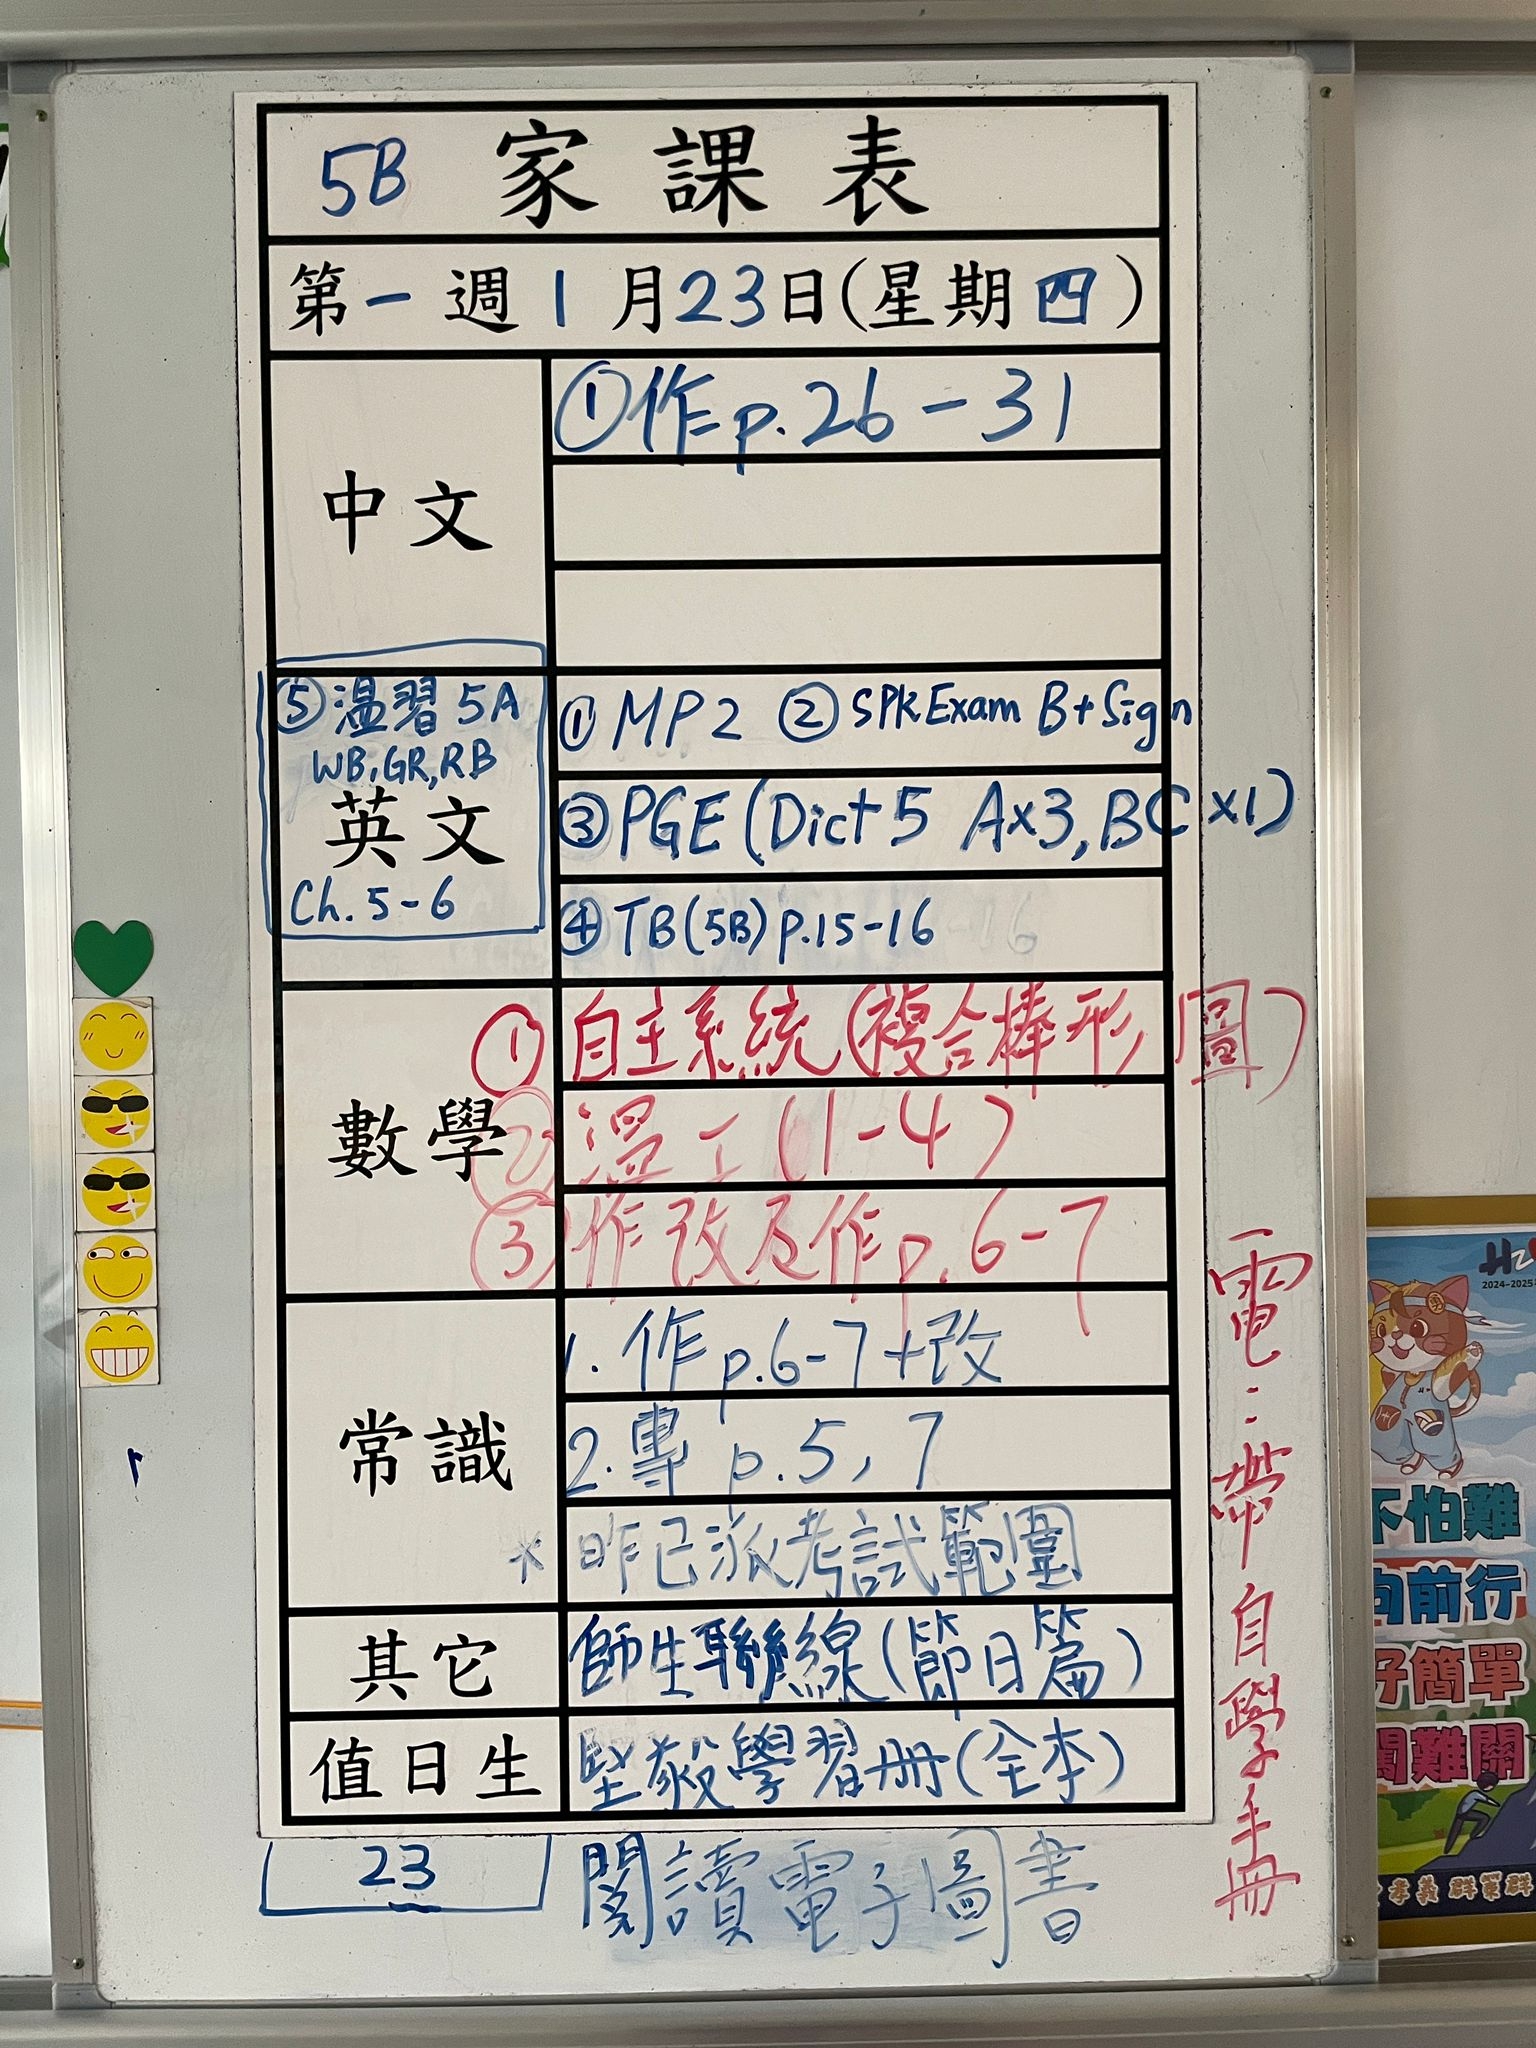 5B 家課表
第一週 1月23日(星期四)
中文
①作p.26-31
英文
①MP2 ②SPK Exam B+Sign
③PGE (Dict 5 A×3, BC×1)
④TB(5B) p.15-16
⑤溫習5A
WB, GR, RB
Ch. 5-6
數學
①自主系統(複合棒形圖)
②溫工(1-4)
③作改及作p.6-7
常識
1. 作p.6-7+改
2. 專p.5, 7
*昨已派考試範圍
其它
師生聯線(節日篇)
值日生
堅毅學習冊(全本)
23
閱讀電子圖書
電:帶自學手冊
2024-2025
不怕難
向前行
好簡單
闖難關